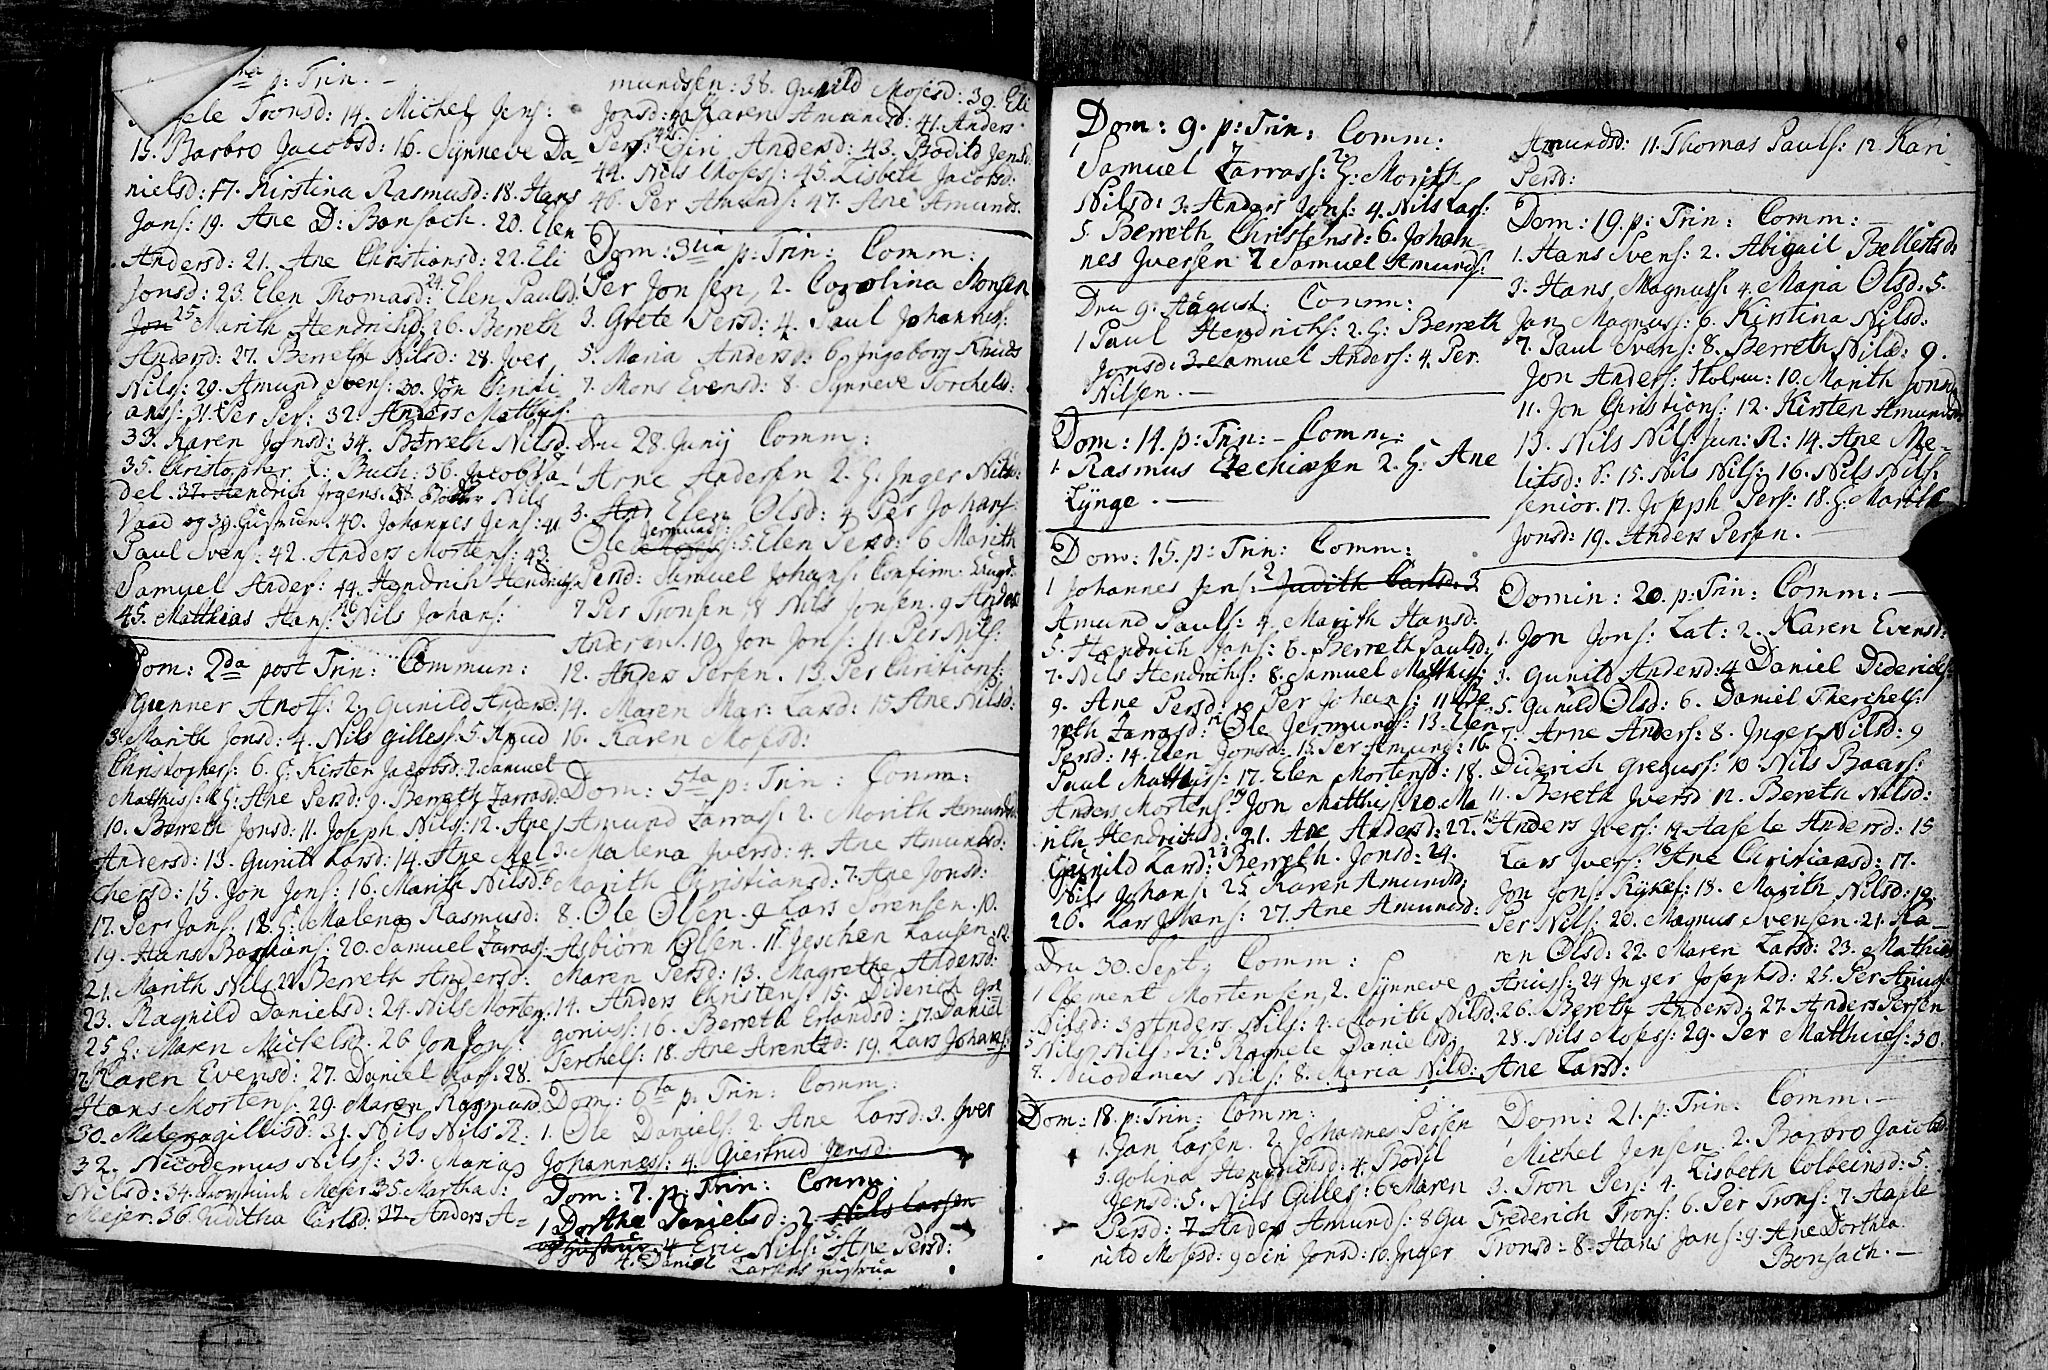 p: Trin. –
Tronsd: 14. Michel Jens:
15. Barbro Jacobsd: 16. Synneve Da-
nielsd: 17. Kirstina Rasmusd: 18. Hans
Jans: 19. Ane D: Bonsach. 20. Elen
Andersd: 21. Ane Christiansd: 22. Eli
Jonsd: 23. Elen Thomasd: 24. Elen Paulsd.
Jon 25. Marith Hendrichsd: 26. Berreth
Andersd: 27. Berreth Nilsd: 28. Iver
Nils: 29. Amund Svens: 30. Jon Cristi
ans: 31. Per Pers: 32. Anders Mathis:
33. Karen Jonsd: 34. Berreth Nilsd:
35. Christopher L: Buch: 36. Jacob
del. 37. Hendrich Jrgens. 38 Nils
Vaad og 39. Hustrue. 40. Johannes Jens: 41
Paul Svens: 42. Anders Mortens: 43
Samuel Ander: 44. Hendrich Hendrichs:
45. Matthias Hans: 46 Nils Johans:
Dom: 2da post Trin: Commun:
Gunner Anots: 2. Gunild Andersd:
3. Marith Jonsd: 4. Nils Gilless: 5. Knud
Christophers: 6. H: Kirsten Jacobsd: 7. Samuel
Mathiss: 8 H: Ane Persd: 9. Berreth Zarrasd:
10. Berreth Jonsd: 11. Joseph Nils: 12. Ane
Andersd: 13. Gunild Larsd: 14. Ane Mel
chersd: 15. Jon Jons: 16. Marith Nilsd:
17. Per Jans: 18. H: Malena Rasmusd:
19. Hans Bastians: 20. Samuel Zarras:
21. Marith Nils 22 Berreth Andersd:
23. Ragnild Danielsd: 24. Nils Morten
25 H: Maren Michelsd. 26 Jon Jons:
Karen Evensd: 27. Daniel Lars: 28.
Hans Mortens: 29. Maren Rasmusd
30. Malena Gillisd: 31. Nils Nils R:
32. Nicodemus Nilss: 33. Maria
Nilsd: 34. Meier 35. Martha S:
Mejer. 36. Juditha Carlsd: 37. Anders A=
mundsen: 38. Gunild Mosesd: 39. Eli
Jonsd: 40 Karen Amundsd: 41. Anders
Pers: 42. Siri Andersd: 43. Bodild Jensd:
44. Nils Moses: 45. Lisbeth Jacobsd:
46. Per Amunds: 47. Ane Amunds.
Dom: 3tia p: Trin: Comm:
1 Per Jonsen, 2. Carolina Monsen
3. Grete Persd: 4. Paul Johannes:
5. Maria Andersd: 6. Ingeborg Knuds
7. Mons Evensd: 8. Synneve Torchelsd:
Dne 28. Junij Comm:
1 Arne Andersen 2. H: Inger Nilsd:
3. And Elen Olsd: 4 Per Johans
Ole Jermunds: 5. Elen Persd: 6 Marith
Persd: Samuel Johans: Confirm:
7 Per Tronsen 8 Nils Jonsen. 9 Anders
Andersen. 10. Jon Jons: 11 Per Nils:
12. Anders Persen. 13. Per Christians:
14. Maren Mar: Larsd: 15 Ane Nilsd:
16. Karen Mosesd:
Dom: 5ta p: Trin: Comm:
1 Amund Zarras: 2. Marith Amundsd:
3. Malena Iversd: 4. Ane Amundsd:
6 Marith Christiansd: 7. Ane Jonsd:
8. Ole Olsen. 9 Lars Sorensen. 10.
Asbiörn Olsen. 11. Jeschen Lausen. 12.
Maren Persd: 13. Magrethe Andersd:
14. Anders Christens: 15. Diderich Gre
goriuss: 16. Berreth Erlandsd: 17. Daniel
Terchels: 18. Ane Arentsd: 19. Lars Johans:
Dom: 6ta p: Trin: Comm:
1. Ole Daniels: 2. Ane Larsd: 3. Iver
Johanness: 4. Giertrud Jensd:
Dom: 7. p: Trin: Comm:
1 Dor Ane Danielsd: 2. Nils Larsen
og Hustrue. 4 Eric Nils: 5. Ane Persd:
4. Daniel Larsens Hustrue
Dom: 9. p: Trin: Comm:
1 Samuel Zarras: 2. H: Morith
Nilsd: 3. Anders Jons: 4. Nils Lars:
5. Berreth Christensd: 6. Johan-
nes Iversen 7 Samuel Amunds:
Dne 9. August. Comm:
1 Paul Hendrichs: 2. H: Berreth
Jonsd: 3. Samuel Anders: 4. Per
Nilsen. –
Dom: 14. p: Trin: – Comm:
1. Rasmus Zechiæsen 2. H: Ane
Lynge. –
Dom: 15. p: Trin: Comm:
1 Johannes Jens: 2 Judith Carlsd: 3.
Amund Pauls: 4. Marith Hansd:
5. Hendrich Jans: 6. Berreth Paulsd:
7. Nils Hendrichs: 8. Samuel Matthis:
9. Ane Persd: 10 Per Johans: 11 Be
reth Zarrasd: 12 Ole Jermunds: 13. Elen
Persd: 14. Elen Jonsd: 15. Per Amunds: 16.
Paul Matthiss: 17. Elen Mortensd: 18.
Anders Mortens: 19 Jon Matthiss 20. Ma
rith Hendrichsd: 21. Ane Andersd: 22.
Gunild Larsd: 23 Berreth. Jonsd: 24.
Nils Johans: 25 Karen Amundsd:
26. Lars Johans: 27. Ane Amundsd:
Dne 30. Sept. Comm:
1 Clement Mortensen, 2. Synneve
Nilsd: 3 Anders Nils: 4. Morith Nilsd.
5 Nils Nils: R: 6 Ragnele Danielsd
7. Nicodemus Nils: 8. Maria Nilsd:
Dom: 18. p: Trin: Comm:
1. Jan Larsen. 2. Johannes Persen
3. Golina Hendrichsd: 4. Bodil
Jensd: 5. Nils Gilles: 6. Maren
Persd: 7 Anders Amunds: 8 Gu
nild Mosesd: 9 Siri Jonsd: 10. Inger
Amundsd: 11. Thomas Pauls: 12. Kari
Persd:
Dom: 19. p: Trin: Comm: –
1. Hans Svens: 2. Abigail Bellesd:
3. Hans Magnuss: 4. Maria Olsd: 5.
Jan Magnuss: 6. Kirstina Nilsd:
7. Paul Svens: 8. Berreth Nilsd: 9.
Jon Anders: Holm: 10. Marith Jonsd
11. Jon Christians: 12. Kirsten Amundsd:
13. Nils Nils: Jun: R: 14. Ane Me-
litsd: S: 15. Nils Nils: 16. Nils Nils:
senior. 17. Joseph Pers: 18. H: Marith
Jonsd: 19. Anders Persen. –
Domin: 20. p: Trin: Comm: –
1. Jon Jons: Lat: 2. Karen Evensd:
3. Gunild Andersd: 4 Daniel Diderichs:
5. Gunild Olsd: 6. Daniel Therchels:
7. Arne Anders: 8. Inger Nilsd: 9
Diderich Gregus: 10. Nils Baars:
11. Bereth Iversd 12. Bereth Nilsd:
13 Anders Ivers: 14 Aasele Andersd: 15
Lars Ivers: 16 Ane Christiansd: 17.
Jon Jons: Rykes: 18. Marith Nilsd: 19.
Per Nils: 20. Magnus Svensen. 21. Ka-
ren Olsd: 22. Maren Larsd: 23. Mathias
Anuss: 24 Inger Josephsd: 25. Per Amunds
26. Bereth Andersd: 27. Anders Persen
28. Nils Moses: 29. Per Matthies: 30.
Ane Larsd:
Dom: 21. p: Trin: Comm. –
1 Michel Jensen. 2. Barbro Jacobsd:
3. Tron Pers: 4. Lisbeth Colbeinsd: 5.
Frederich Trons: 6. Per Trons: 7 Aasele
Tronsd: 8. Hans Jans: 9. Ane Dorthea
Bonsach. –